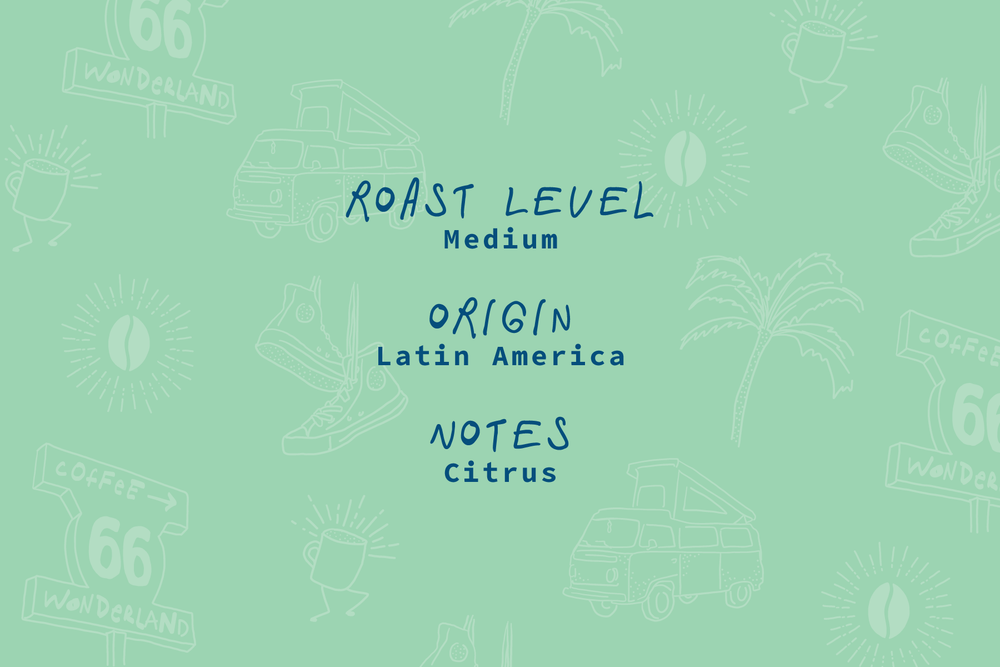 66
WONDERLAND
ROAST LEVEL
Medium
ORIGIN
Latin America
COFFEE
66
WONDERLAND
NOTES
Citrus
COFFEE →
66
WONDERLAND